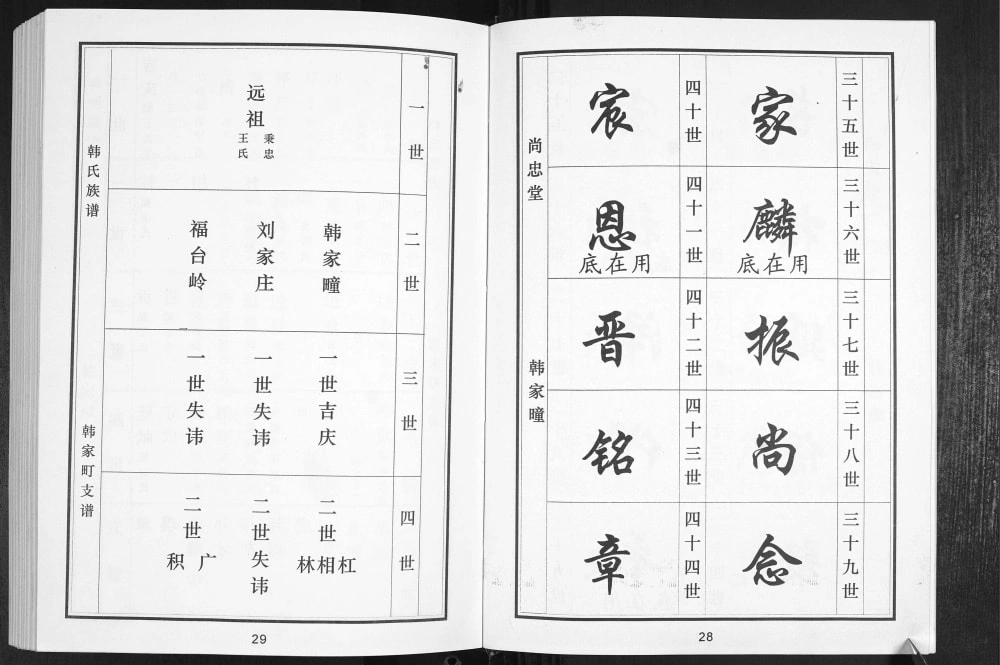 三十五世
家
三十六世
麟
底在用
三十七世
振
三十八世
尚
三十九世
念
四十世
宸
四十一世
恩
底在用
四十二世
晋
四十三世
铭
四十四世
章
尚忠堂
韩家疃
28
一世
远祖
秉忠
王氏
二世
韩家疃
刘家庄
福台岭
三世
一世吉庆
一世失讳
一世失讳
四世
二世
杠
相
林
二世失讳
二世
广
积
韩氏族谱
韩家町支谱
29